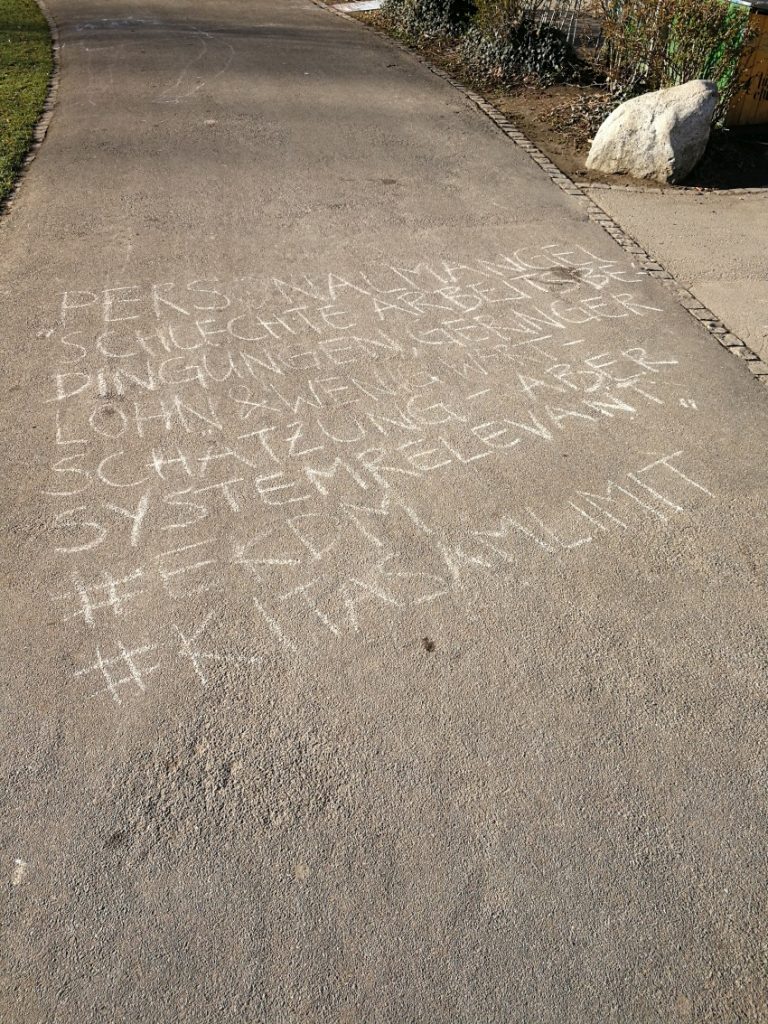 „PERSONALMANGEL,
SCHLECHTE ARBEITSBE-
DINGUNGEN, GERINGER
LOHN & WENIG WERT-
SCHÄTZUNG - ABER
SYSTEMRELEVANT“
#EKDM
#KITASAMLIMIT